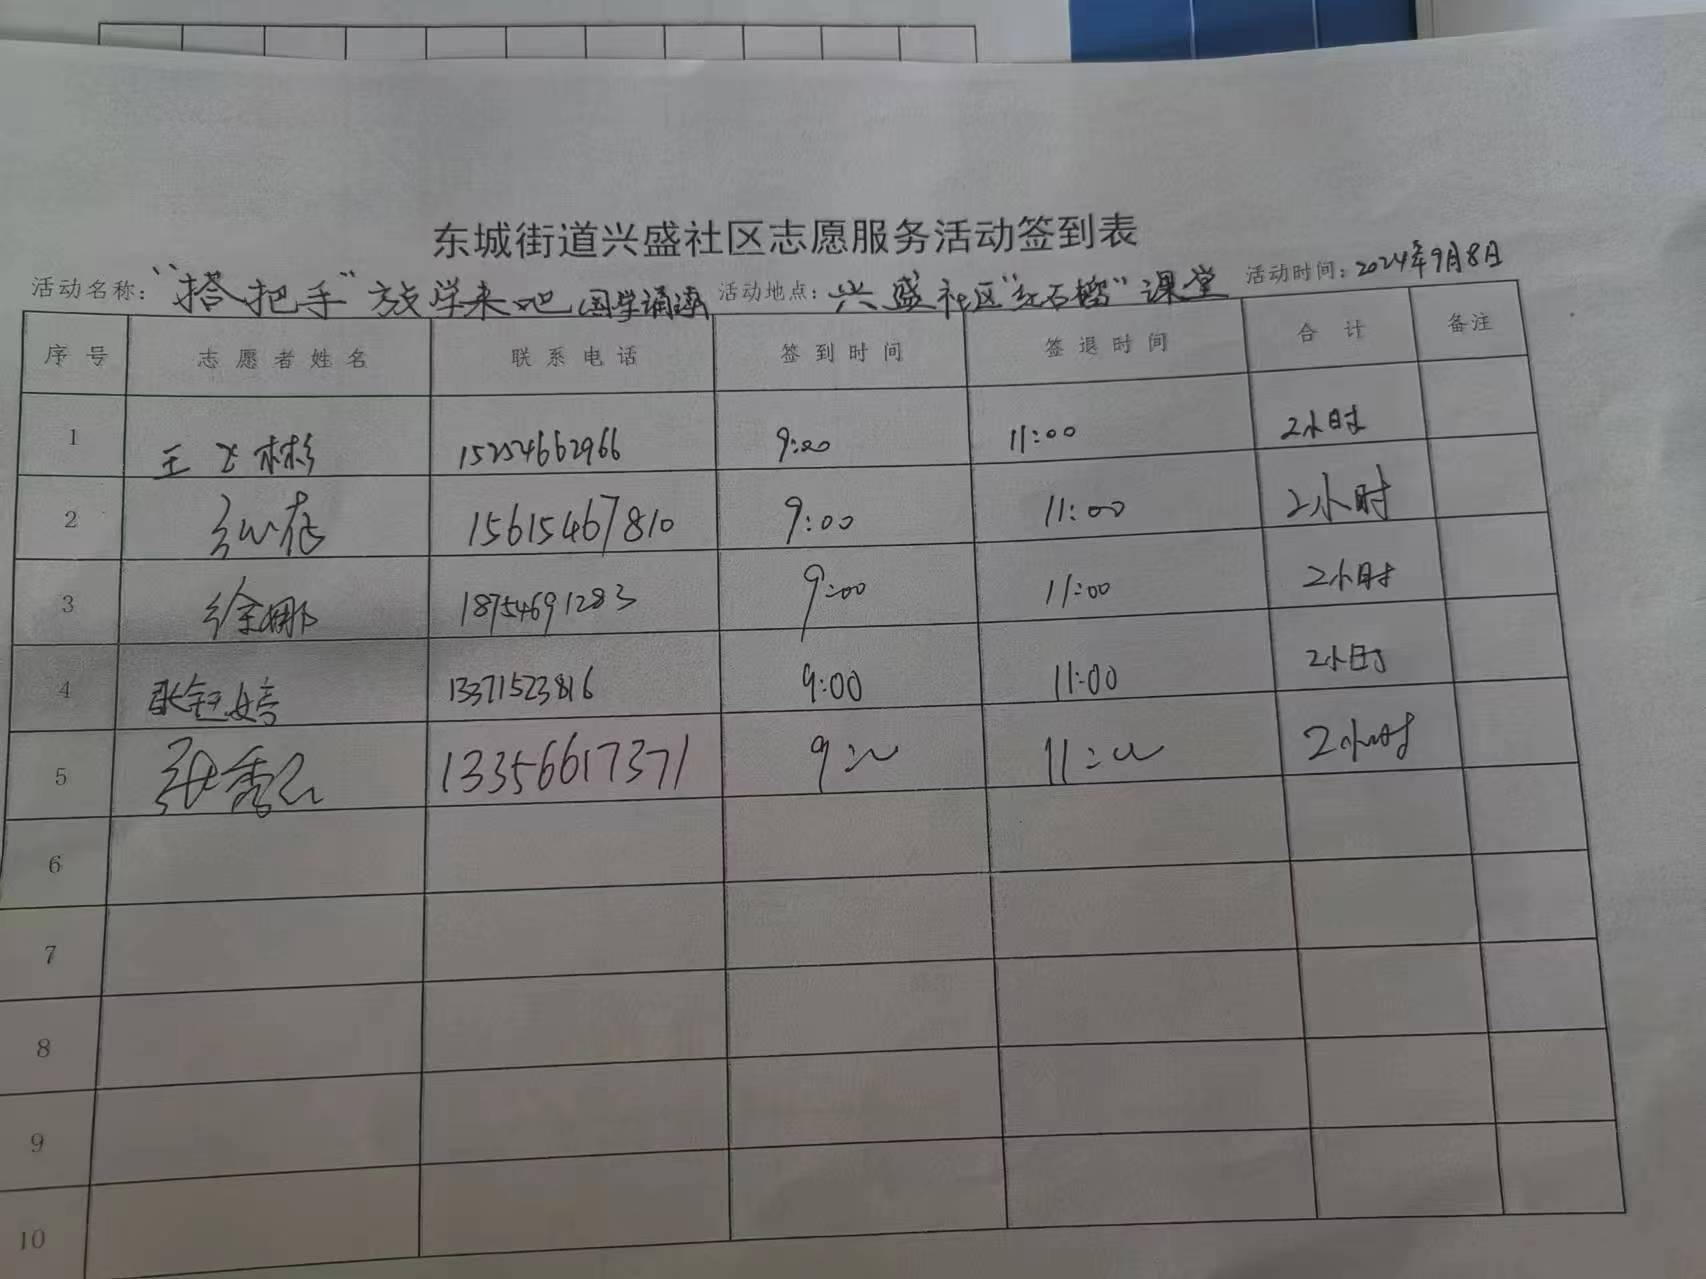 东城街道兴盛社区志愿服务活动签到表
活动名称："搭把手"放学来吧国学诵读 活动地点：兴盛社区"红石榴"课堂 活动时间：2024年9月8日
序号 志愿者姓名 联系电话 签到时间 签退时间 合计 备注
1 王飞彬 15254662966 9:00 11:00 2小时
2 15615467810 9:00 11:00 2小时
3 徐娜 18754691283 9:00 11:00 2小时
4 张钰婷 13371523816 9:00 11:00 2小时
5 13356617371 9:00 11:00 2小时
6
7
8
9
10